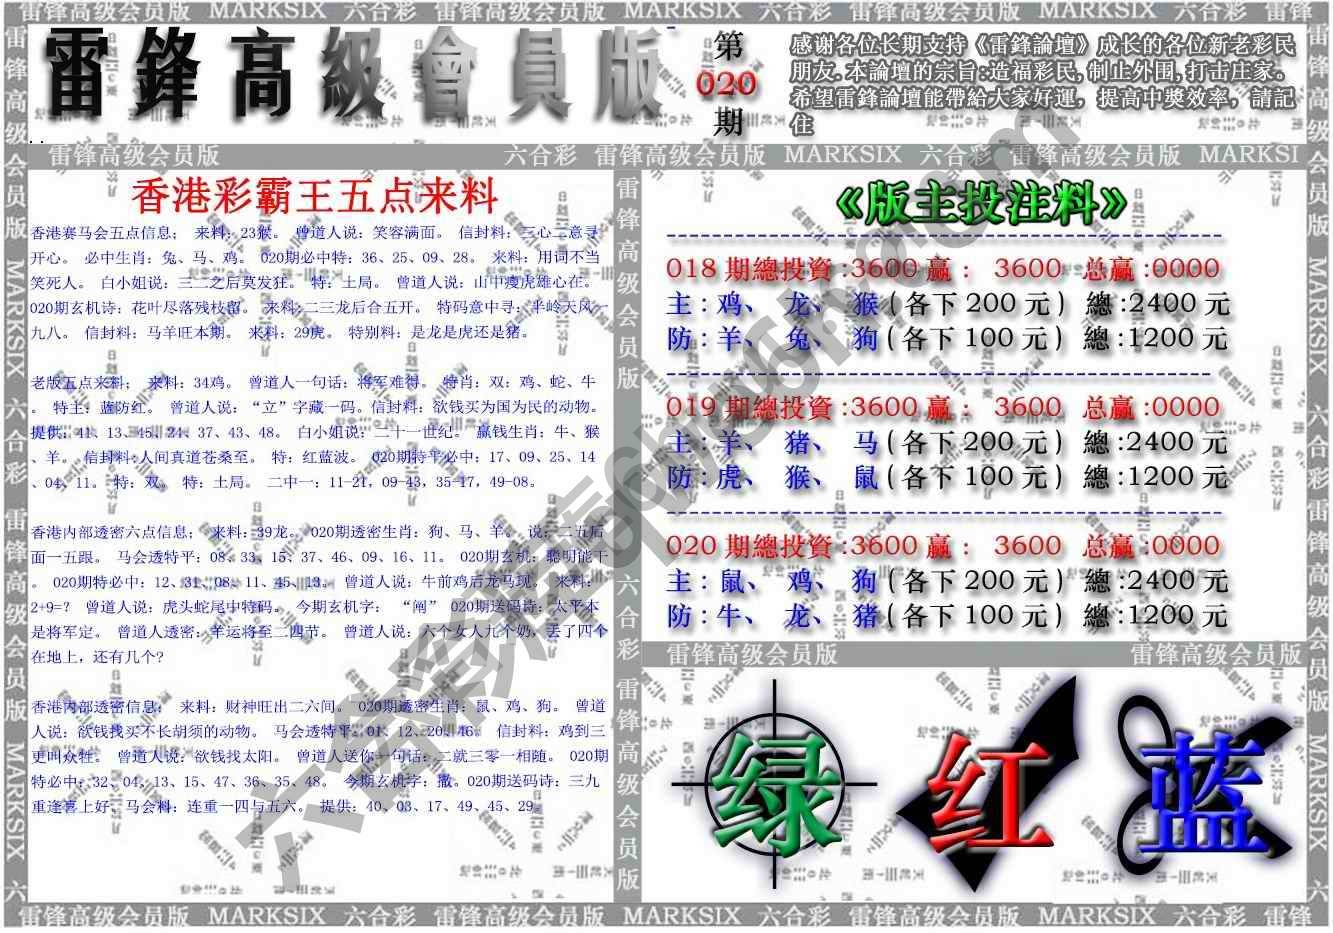 雷锋高级会员版 MARKSIX 六合彩 雷锋高级会员版 MARKSIX 六合彩 雷锋高级会员版 MARKSIX 六合彩 雷锋
雷鋒高級會員版
第
020
期
感谢各位长期支持《雷鋒論壇》成长的各位新老彩民
朋友.本論壇的宗旨:造福彩民,制止外围,打击庄家。
希望雷鋒論壇能帶給大家好運，提高中獎效率，請記
住
雷锋高级会员版 六合彩 雷锋高级会员版 MARKSIX 六合彩 雷锋高级会员版 MARKSI
香港彩霸王五点来料
香港赛马会五点信息； 来料：23猴。 曾道人说：笑容满面。 信封料：三心二意寻
开心。 必中生肖：兔、马、鸡。 020期必中特：36、25、09、28。 来料：用词不当
笑死人。 白小姐说：三二之后莫发狂。 特：土局。 曾道人说：山中瘦虎雄心在。
020期玄机诗：花叶尽落残枝留。 来料:二三龙后合五开。 特码意中寻：半岭天风一
九八。 信封料：马羊旺本期。 来料：29虎。 特别料：是龙是虎还是猪。
老版五点来料； 来料：34鸡。 曾道人一句话：将军难得。 特肖：双：鸡、蛇、牛
。 特主：蓝防红。 曾道人说：“立”字藏一码。信封料：欲钱买为国为民的动物。
提供：41、13、45、24、37、43、48。 白小姐说：二十一世纪。 赢钱生肖：牛、猴
、羊。 信封料:人间真道苍桑至。 特：红蓝波。 020期特平必中：17、09、25、14
、04、11。 特：双。 特：土局。 二中一：11-21，09-43，35-17，49-08。
香港内部透密六点信息； 来料：39龙。 020期透密生肖：狗、马、羊。 说：二五后
面一五跟。 马会透特平：08、33、15、37、46、09、16、11。 020期玄机：聪明能干
。 020期特必中：12、31、08、11、45、13。 曾道人说：牛前鸡后龙马现。 来料：
2+9=？ 曾道人说：虎头蛇尾中特码。 今期玄机字： “阐” 020期送码诗：太平本
是将军定。 曾道人透密：羊运将至二四节。 曾道人说：六个女人九个奶，丢了四个
在地上，还有几个?
香港内部透密信息； 来料：财神旺出二六间。 020期透密生肖：鼠、鸡、狗。 曾道
人说：欲钱找买不长胡须的动物。 马会透特平：01、12、20、46。 信封料：鸡到三
更叫众牲。 曾道人说：欲钱找太阳。 曾道人送你一句话：二就三零一相随。 020期
特必中：32、04、13、15、47、36、35、48。 今期玄机字：撤。020期送码诗：三九
重逢喜上好、马会料：连重一四与五六。 提供：40、03、17、49、45、29。
《版主投注料》
018 期總投資:3600 赢： 3600 总赢:0000
主：鸡、 龙、 猴(各下 200 元) 總:2400 元
防：羊、 兔、 狗(各下 100 元) 總:1200 元
019 期總投資:3600 赢： 3600 总赢:0000
主：羊、 猪、 马(各下 200 元) 總:2400 元
防：虎、 猴、 鼠(各下 100 元) 總:1200 元
020 期總投資:3600 赢： 3600 总赢:0000
主：鼠、 鸡、 狗(各下 200 元) 總:2400 元
防：牛、 龙、 猪(各下 100 元) 總:1200 元
雷锋高级会员版 雷锋高级会员版
绿 红 蓝
雷锋高级会员版 MARKSIX 六合彩 雷锋高级会员版 MARKSIX 六合彩 雷锋高级会员版 MARKSIX 六合彩 雷锋